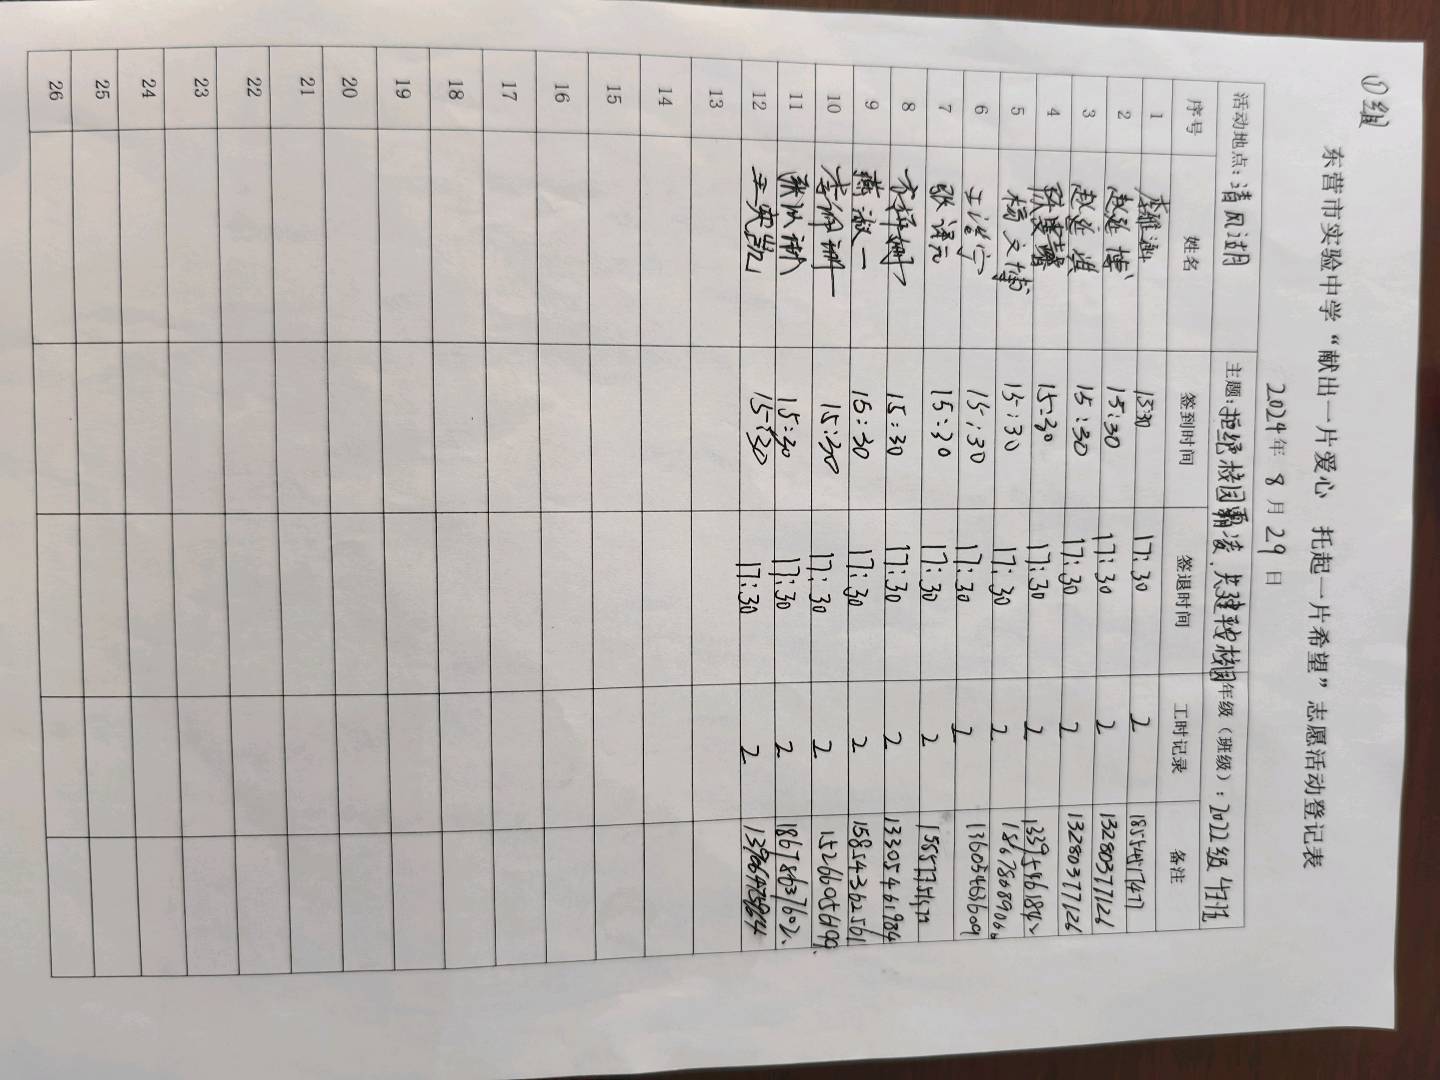 ①组
东营市实验中学“献出一片爱心 托起一片希望”志愿活动登记表
2024年 8 月 29 日
活动地点：清风湖 主题：拒绝校园霸凌，共建和谐校园 年级（班级）：2022级
序号 姓名 签到时间 签退时间 工时记录 备注
1 李雅涵 15:30 17:30 2 18554517477
2 赵延博 15:30 17:30 2 13280377126
3 赵延淇 15:30 17:30 2 13280377126
4 15:30 17:30 2
5 杨文博 15:30 17:30 2
6 15:30 17:30 2 13605463609
7 张译元 15:30 17:30 2
8 15:30 17:30 2 13305461984
9 燕淑一 15:30 17:30 2 15854362561
10 15:30 17:30 2 15266056199
11 15:30 17:30 2 18678637602
12 15:30 17:30 2
13
14
15
16
17
18
19
20
21
22
23
24
25
26